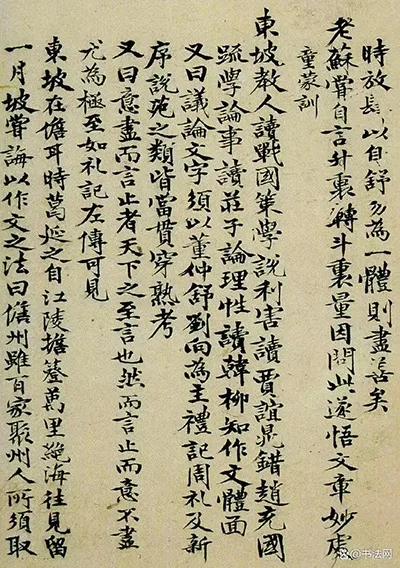 時放長以自舒勿為一體則盡善矣
老蘇嘗自言升裏轉斗裏量因問此遂悟文章妙處
童蒙訓
東坡教人讀戰國策學說利害讀賈誼晁錯趙充國
疏學論事讀莊子論理性讀韓柳知作文體面
又曰議論文字須以董仲舒劉向為主禮記周礼及新
序說苑之類皆當貫穿熟考
又曰意盡而言止者天下之至言也然而言止而意不盡
尤為極至如礼記左傳可見
東坡在儋耳時葛延之自江陵擔簦萬里絕海往見留
一月坡嘗誨以作文之法曰儋州雖百家聚州人所須取
书法网